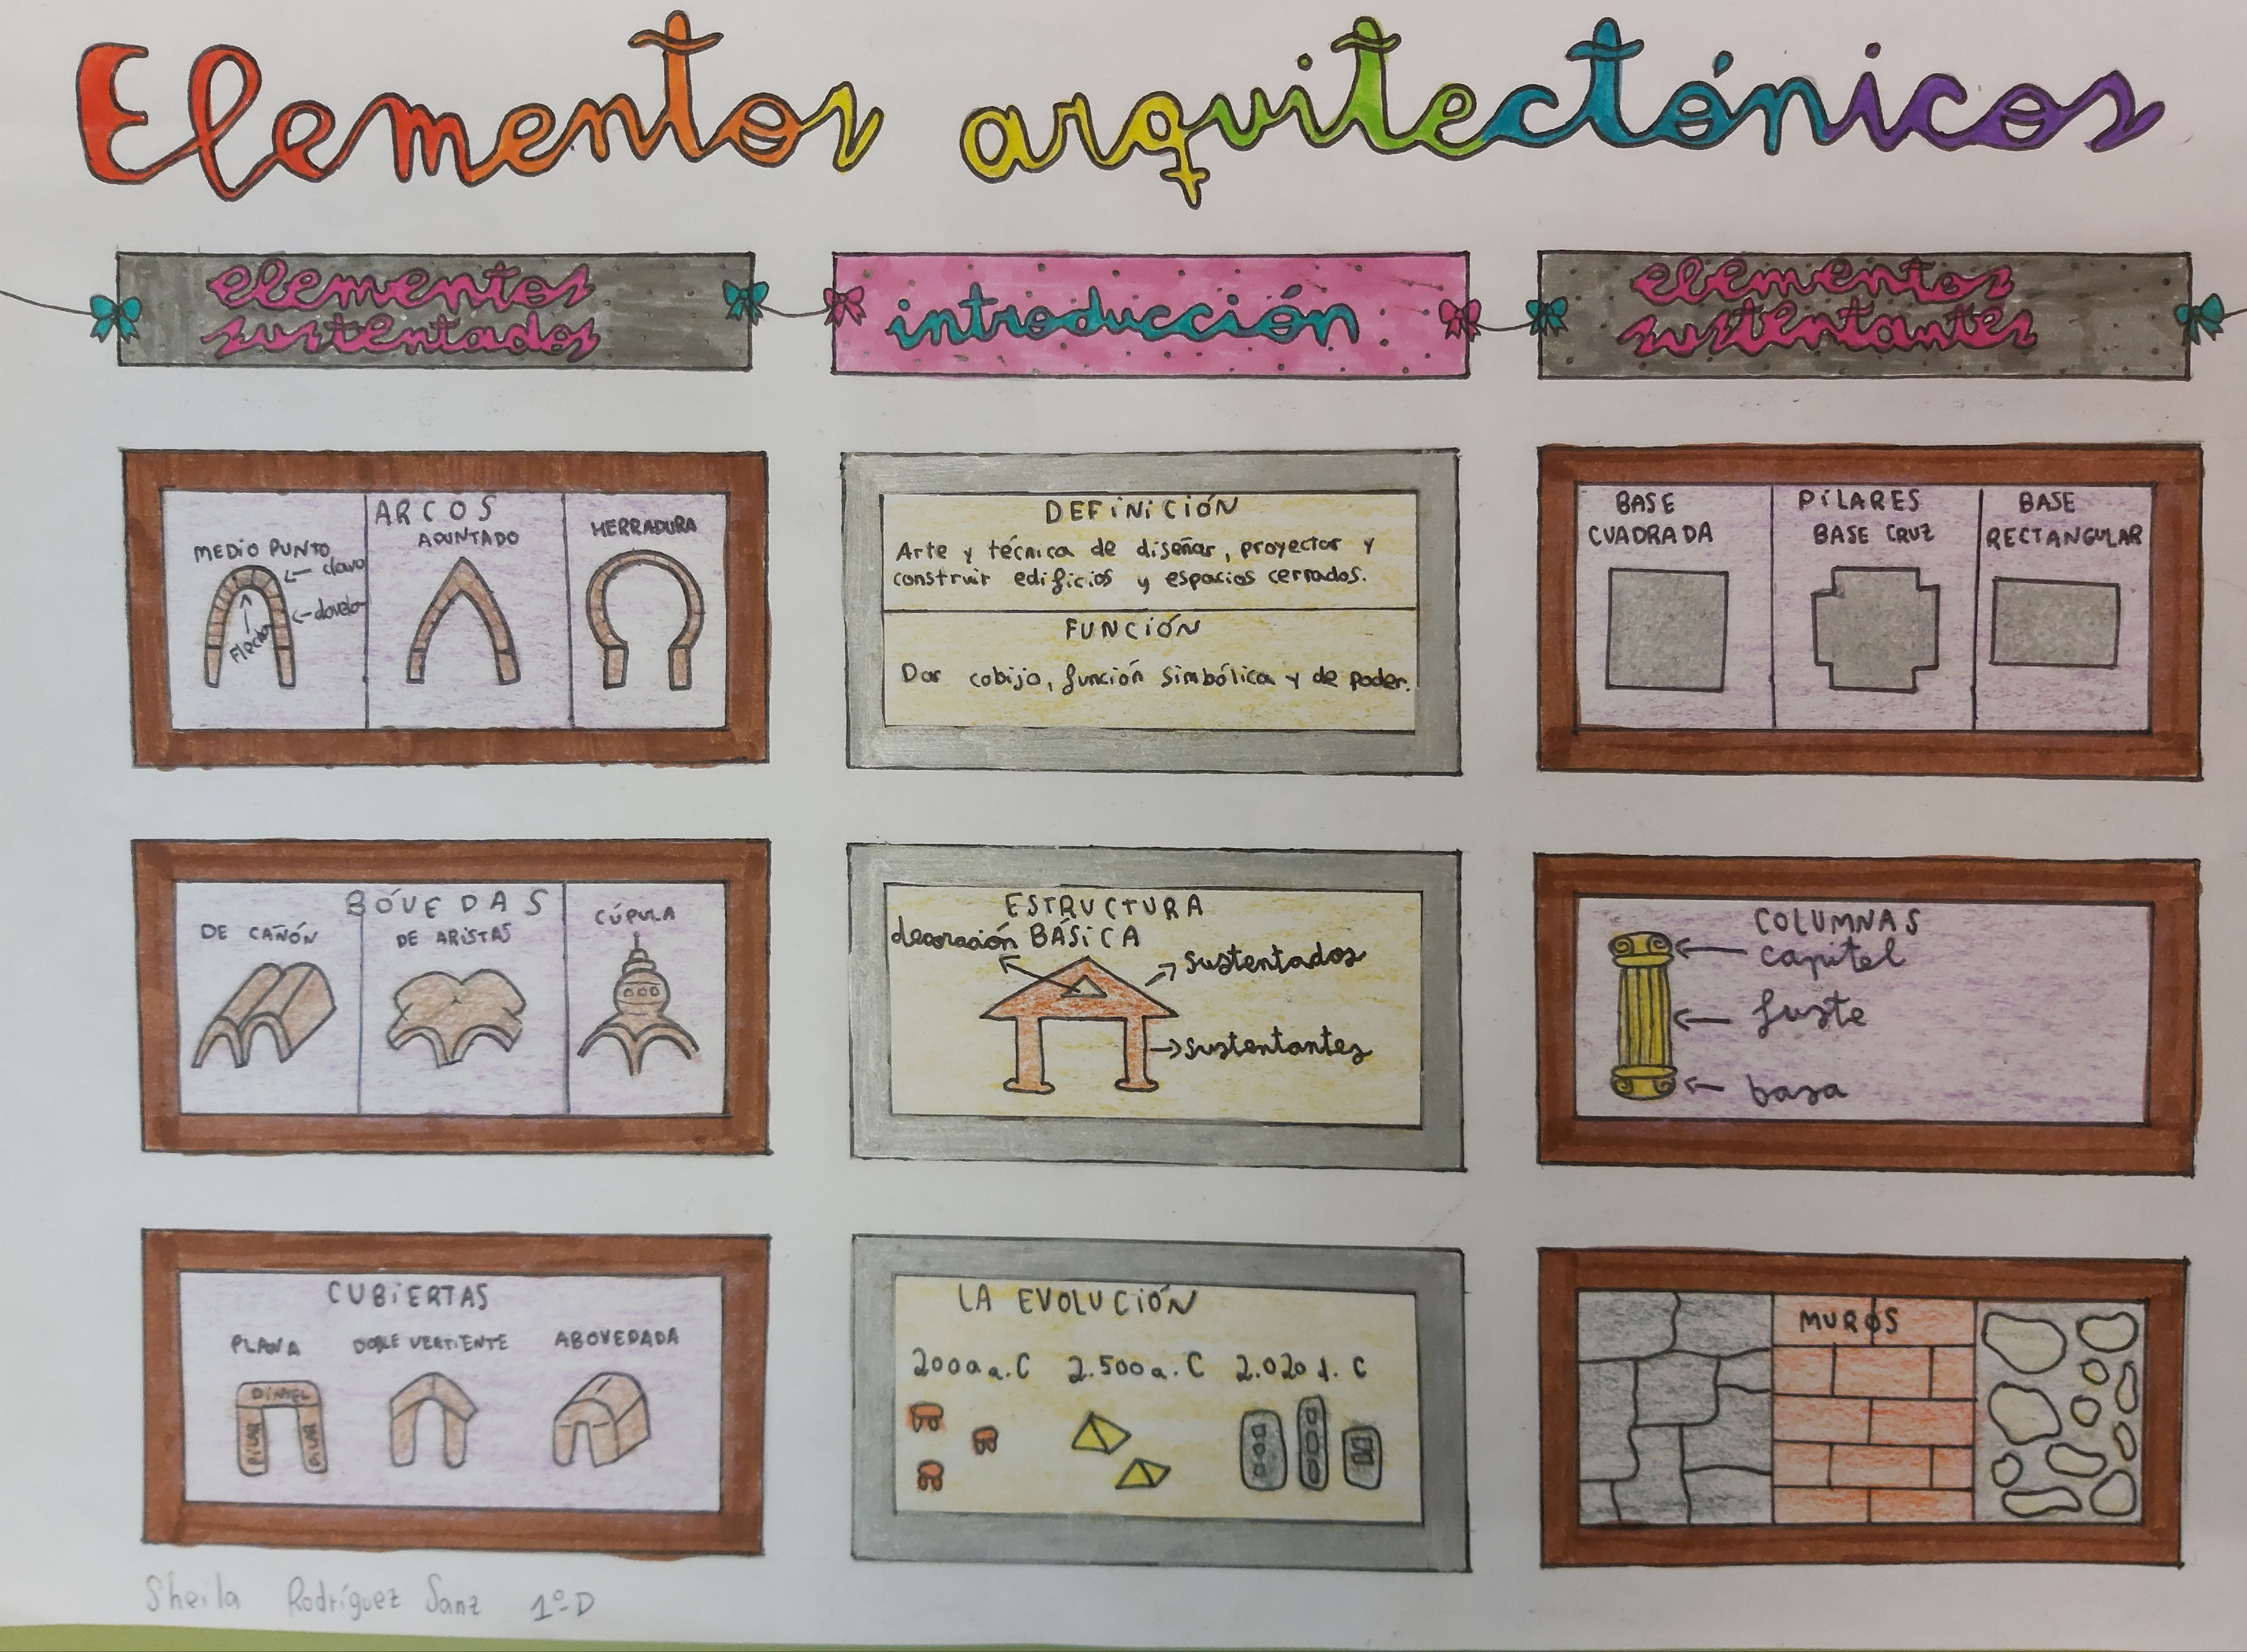 Elementos arquitectónicos
elementos
sustentados
introducción
elementos
sustentantes
ARCOS
MEDIO PUNTO
clave
dovela
Flecha
APUNTADO
HERRADURA
DEFINICIÓN
Arte y técnica de diseñar, proyectar y
construir edificios y espacios cerrados.
FUNCIÓN
Dar cobijo, función simbólica y de poder.
PILARES
BASE
CUADRADA
BASE CRUZ
BASE
RECTANGULAR
BÓVEDAS
DE CAÑÓN
DE ARISTAS
CÚPULA
ESTRUCTURA
BÁSICA
decoración
sustentados
sustentantes
COLUMNAS
capitel
fuste
basa
CUBIERTAS
PLANA
DOBLE VERTIENTE
ABOVEDADA
DINTEL
PILAR
PILAR
LA EVOLUCIÓN
2.500 a. C
2.020 d. C
MUROS
Sheila Rodríguez Sanz 1º D